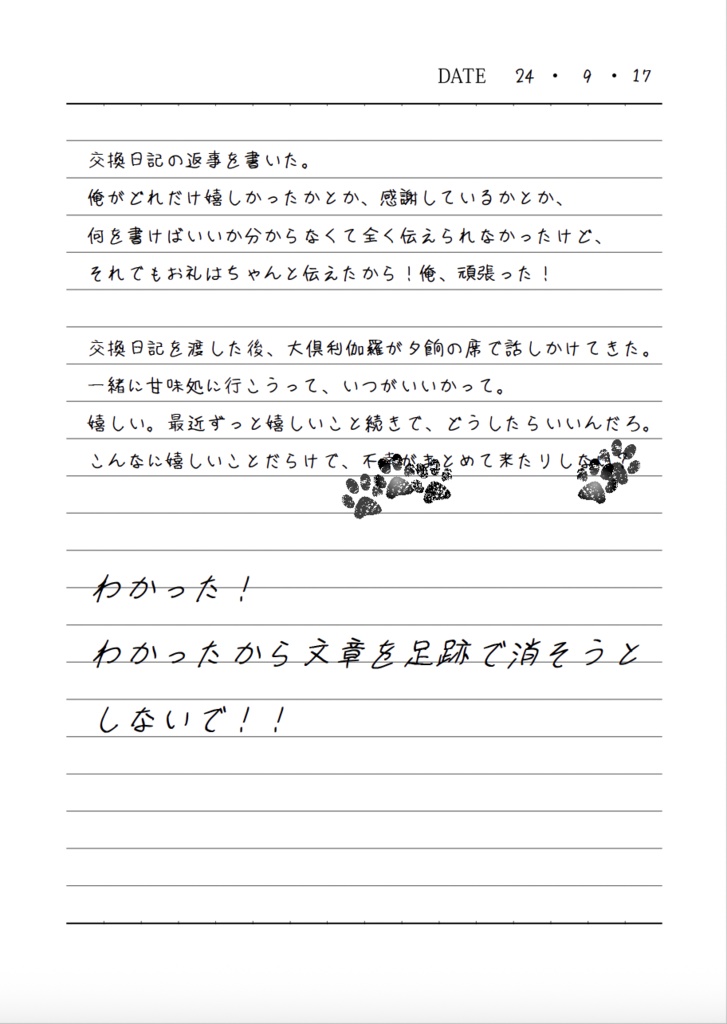 DATE 24・9・17
交換日記の返事を書いた。
俺がどれだけ嬉しかったかとか、感謝しているかとか、
何を書けばいいか分からなくて全く伝えられなかったけど、
それでもお礼はちゃんと伝えたから！俺、頑張った！
交換日記を渡した後、大倶利伽羅が夕餉の席で話しかけてきた。
一緒に甘味処に行こうって、いつがいいかって。
嬉しい。最近ずっと嬉しいこと続きで、どうしたらいいんだろ。
こんなに嬉しいことだらけで、不幸がまとめて来たりしな
わかった！
わかったから文章を足跡で消そうと
しないで！！